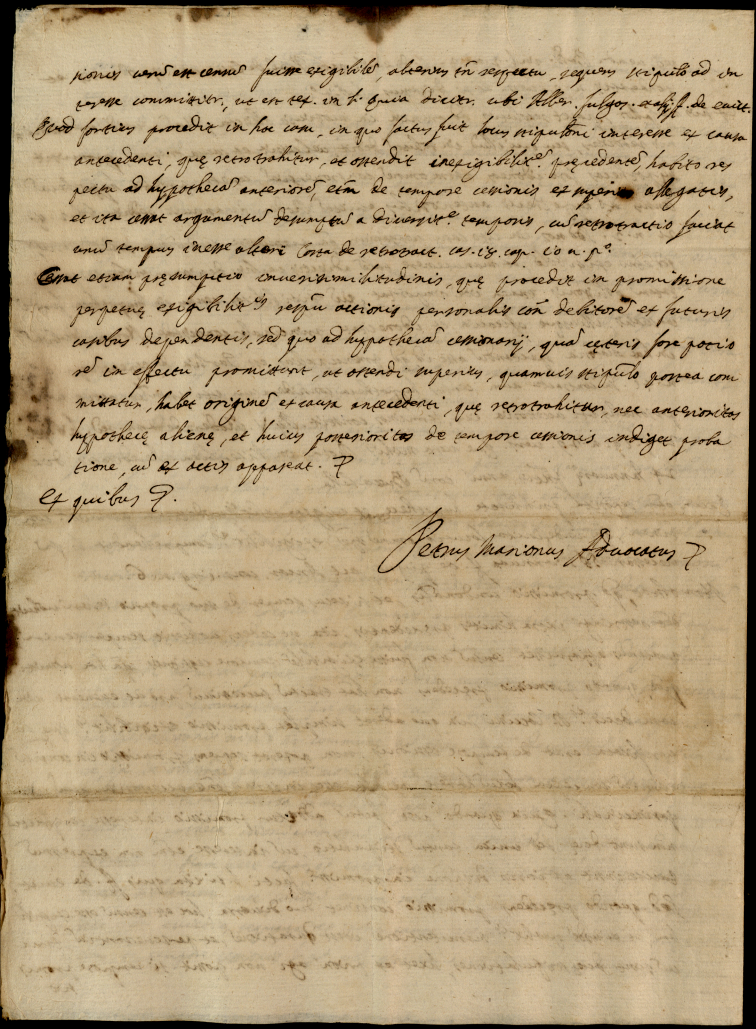 sionis verū est censū fuisse exigibilē, attento tñ respectu, sequens stipulō ad in
teresse committitr, ut est tex. in l. quia dicitr. ubi Alber. fulgos. ff. de evict.
Quod fortius procedit in hoc casu, in quo factus fuit locus stipulōni interesse ex causa
antecedenti, quę retrotrahitur, et ostendit inexigibilitē. pręcedentē, habito res
pectu ad hypothecā anteriorē, etiā de tempore cessionis ex superius allegatis,
et ita cessat argumentū desumptū a diversitē temporis, cū retrotractio faciat
unū tempus inesse alteri Costa de retrotract. cas. 13. cap. 10 n. pº.
Cessat etiam pręsumptio inverisimilitudinis, quę procedit in promissione
perpetuę exigibilitis respū actionis personalis con debitorē ex futuris
casibus dependentis, sed quo ad hypothecā cessionarij, quā cęteris fore potio
rē in effectu promittunt, ut ostendi superius, quamuis stipulō postea com
mittatur, habet originē ex causa antecedenti, quę retrotrahitur, nec anterioritas
hypothecę alienę, et huius posterioritas de tempore cessionis indiget proba
tione, cū ex actis appareat.
Ex quibus
Petrus Marionus Advocatus